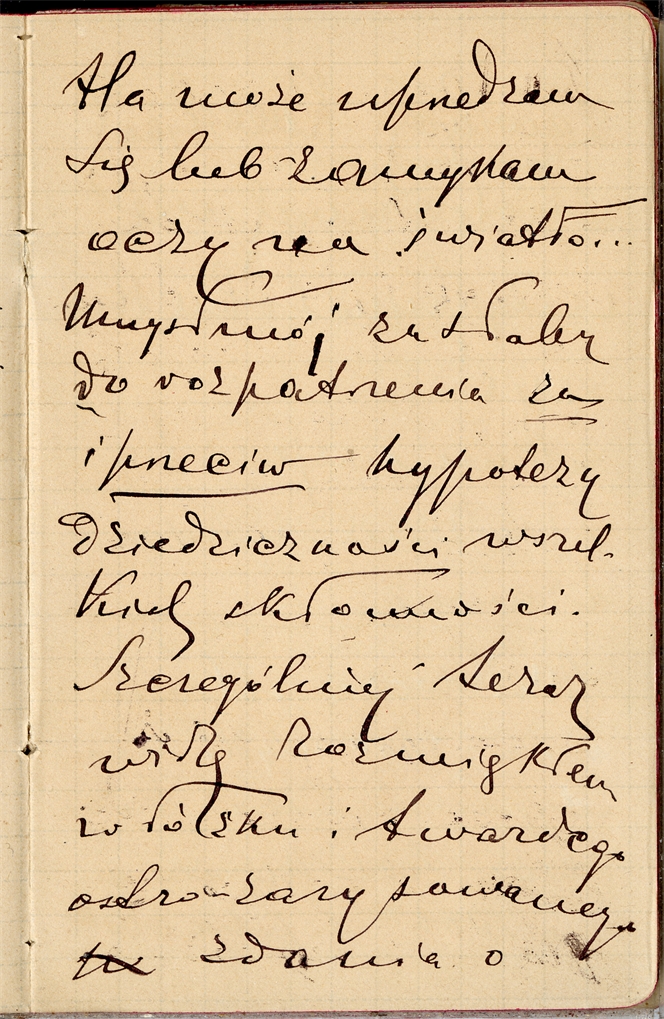 Ha może uprzedzam
się lub zamykam
oczy na światło...
Umysł mój za słaby
do rozpatrzenia za
i przeciw hypotezy
dziedziczności wszel-
kich skłonności.
Szczególniej teraz
widzę rozmiękłem
w łóżku i twardego
ostro zarysowanego
zdania o